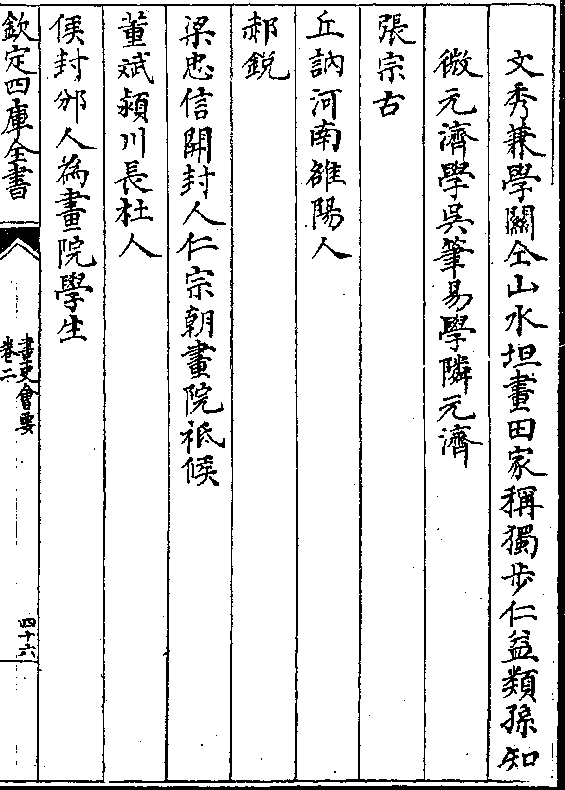 文秀兼學關仝山水坦畫田家稱獨步仁益類孫知
微元濟學吳筆易學隣元濟
張宗古
丘訥河南雒陽人
郝銳
梁忠信開封人仁宗朝畫院祗候
董贇潁川長社人
侯封邠人為畫院學生
欽定四庫全書
畫史會要
卷二
四十六